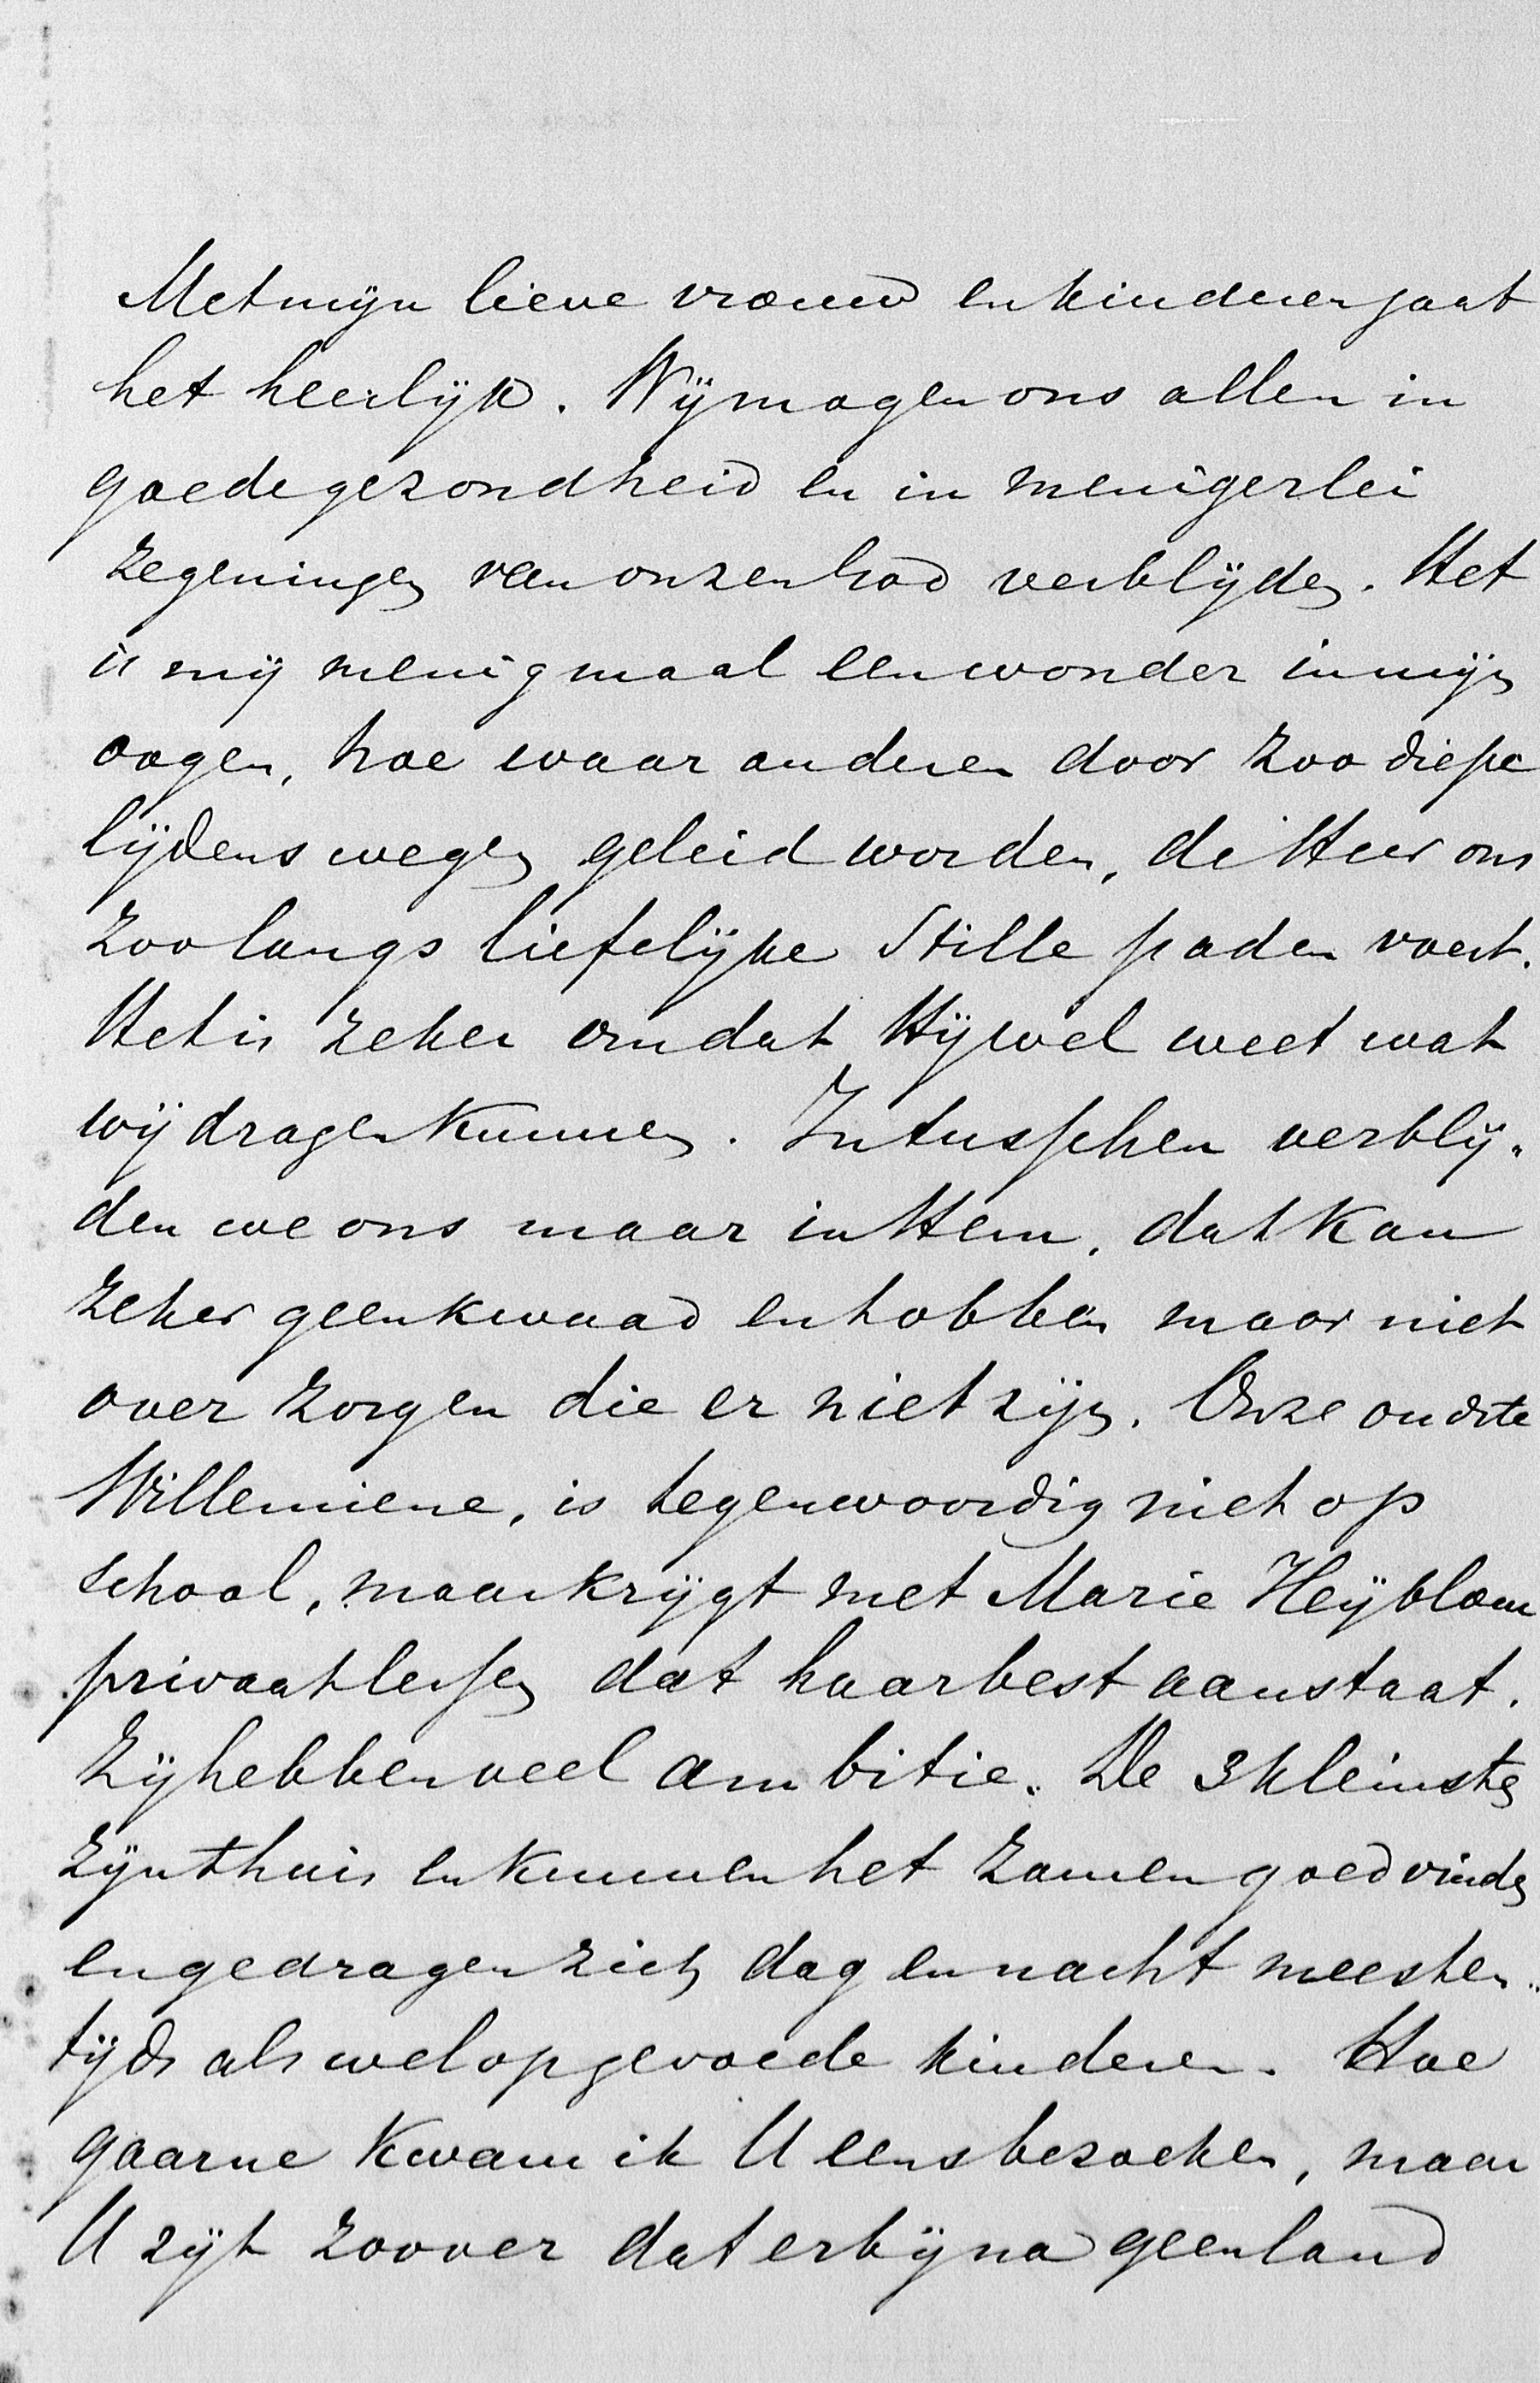 Met mijn lieve vrouw en kinderen gaat
het heerlijk. Wij mogen ons allen in
goede gezondheid en in menigerlei
zegeningen van onzen God verblijden. Het
is mij menigmaal een wonder in mijn
oogen, hoe waar anderen door zoo diepe
lijdens wegen geleid worden, de Heer ons
zoo langs liefelijke stille paden voert.
Het is zeker omdat Hij wel weet wat
wij dragen kunnen. Intusschen verblij-
den we ons maar in Hem, dat kan
zeker geen kwaad en tobben maar niet
over zorgen die er niet zijn. Onze oudste
Willemiene, is tegenwoordig niet op
school, maar krijgt met Marie Heijblom
privaatlessen dat haar best aanstaat.
Zij hebben veel ambitie. De 3 kleinsten
zijn thuis en kunnen het zamen goed vinden
en gedragen zich dag en nacht meesten-
tijds als welopgevoede kinderen. Hoe
gaarne kwam ik U eens bezoeken, maar
U zijt zoo ver dat er bijna geen land